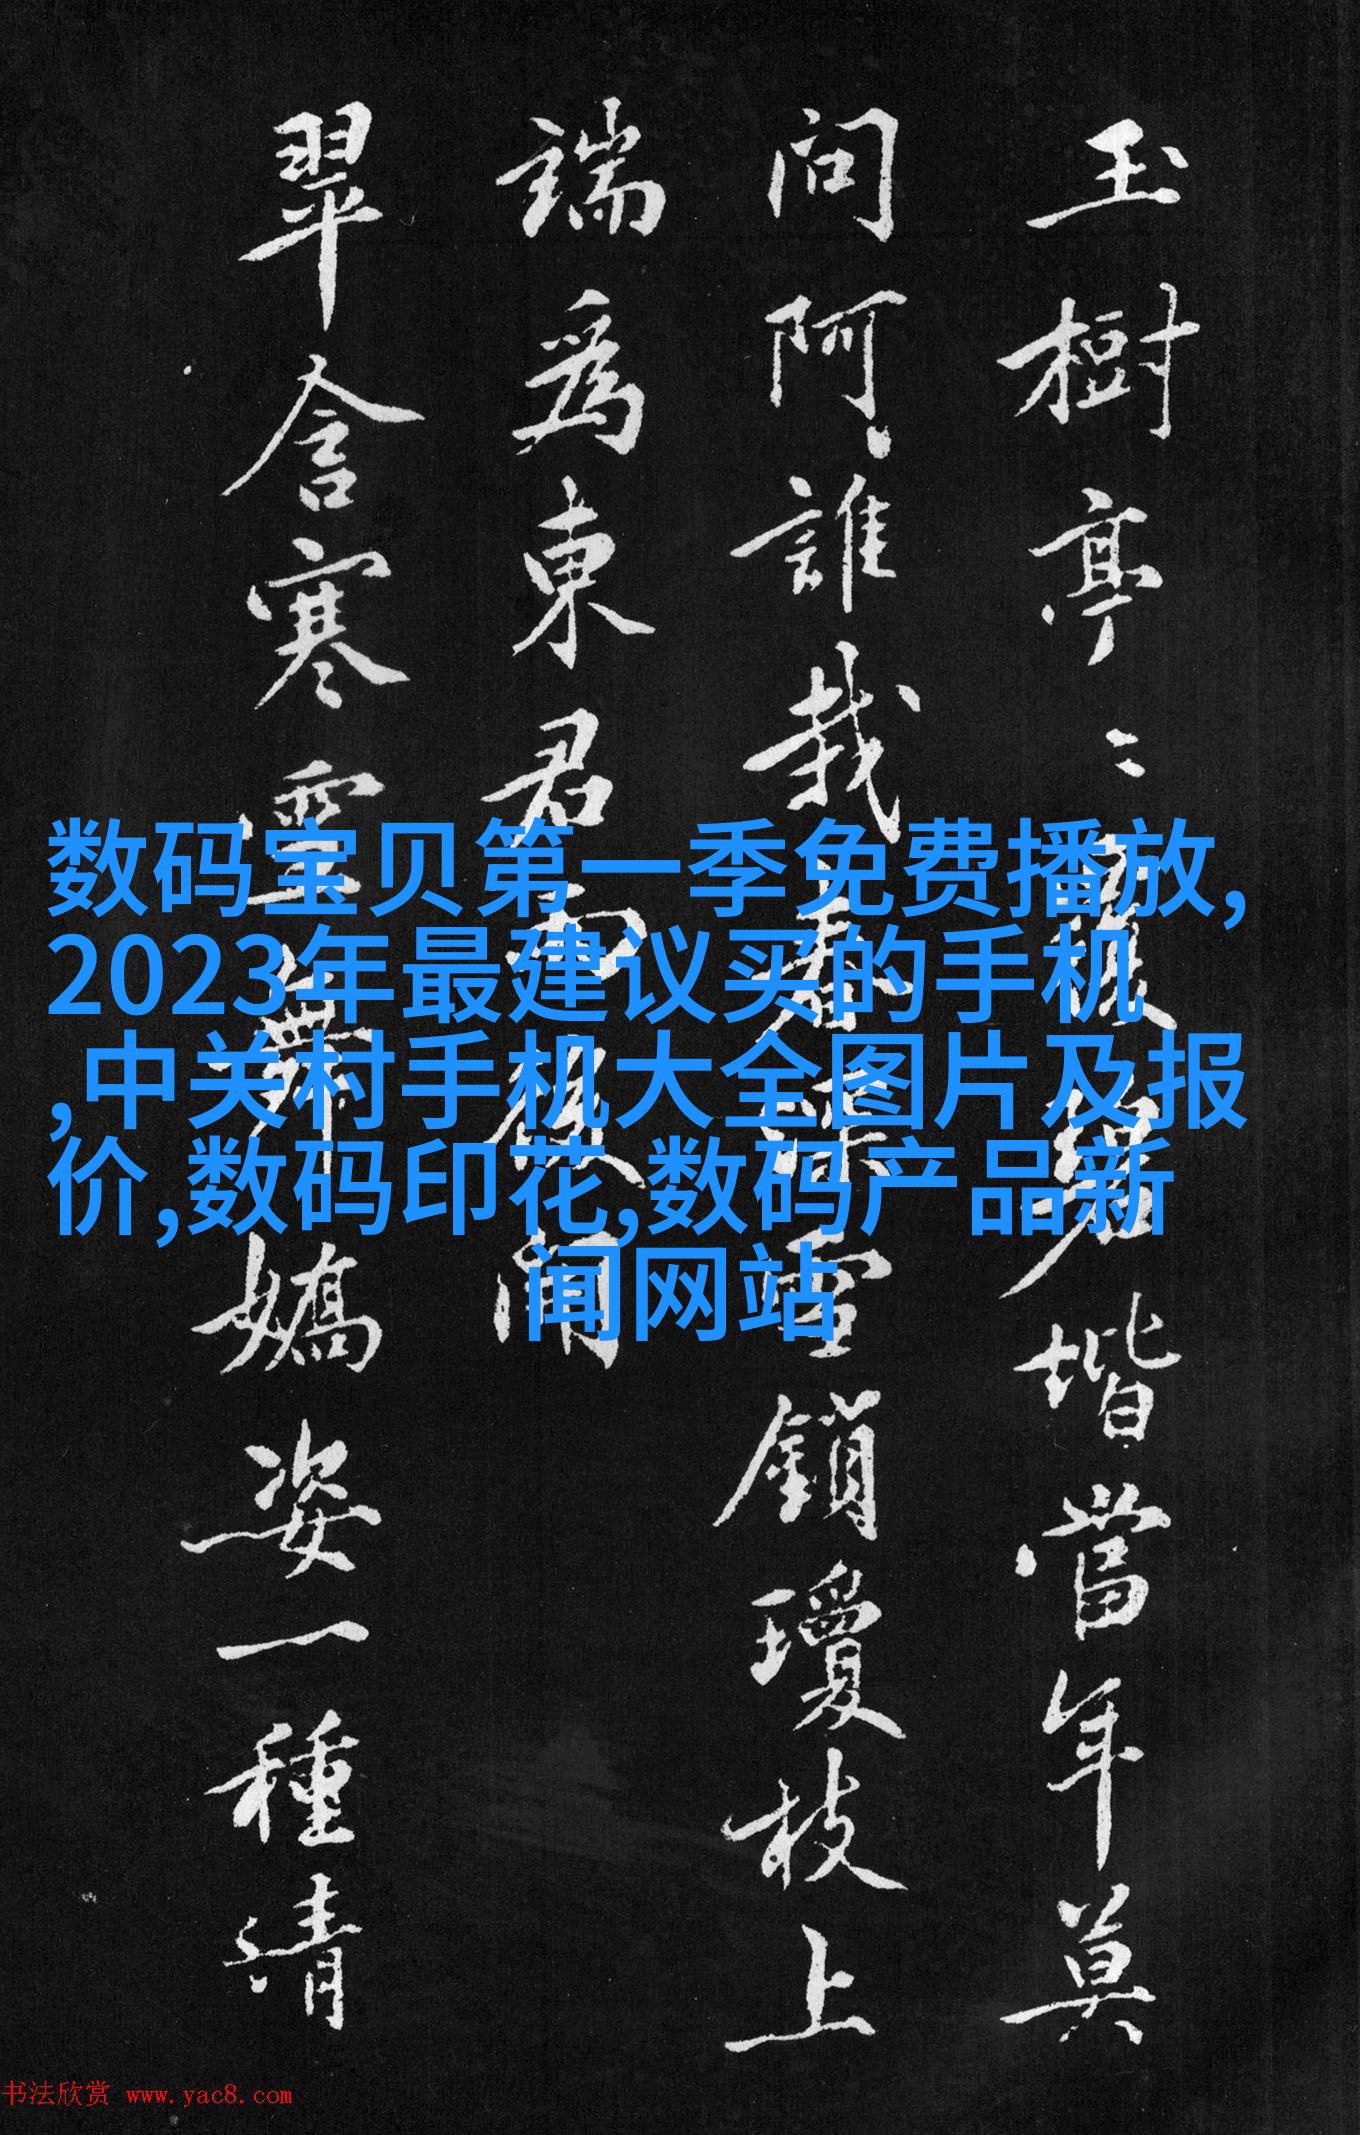 玉樹亭〻堦當年莫
問阿誰栽春深雪鎖瓊枝上
端為東君開
翠含寒嬌姿一種清
数码宝贝第一季免费播放,
2023年最建议买的手机
,中关村手机大全图片及报
价,数码印花,数码产品新
闻网站
书法欣赏 www.yac8.com